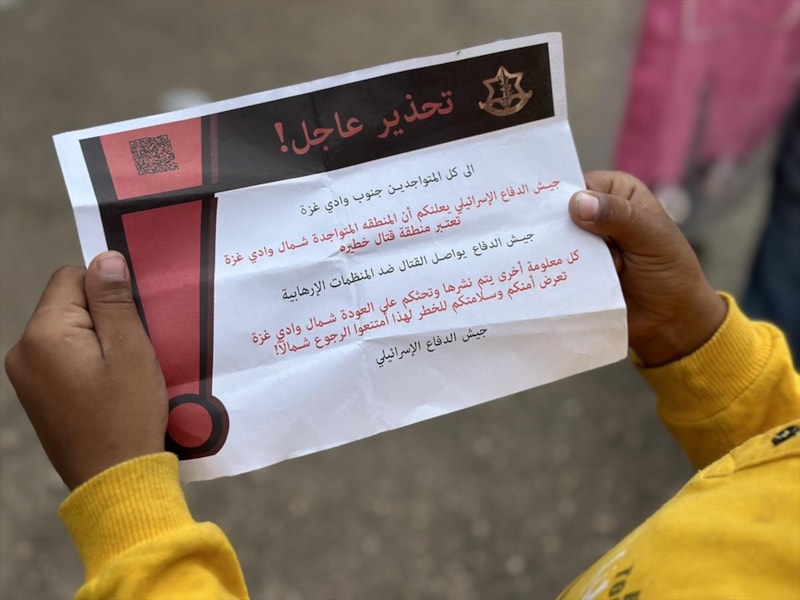 تحذير عاجل!
الى كل المتواجدين جنوب وادي غزة
جيش الدفاع الإسرائيلي يعلنكم أن المنطقه المتواجدة شمال وادي غزة
تعتبر منطقة قتال خطيره
جيش الدفاع يواصل القتال ضد المنظمات الإرهابية
كل معلومة أخرى يتم نشرها وتحثكم على العودة شمال وادي غزة
تعرض أمنكم وسلامتكم للخطر لهذا أمتنعوا الرجوع شمالًا!
جيش الدفاع الإسرائيلي